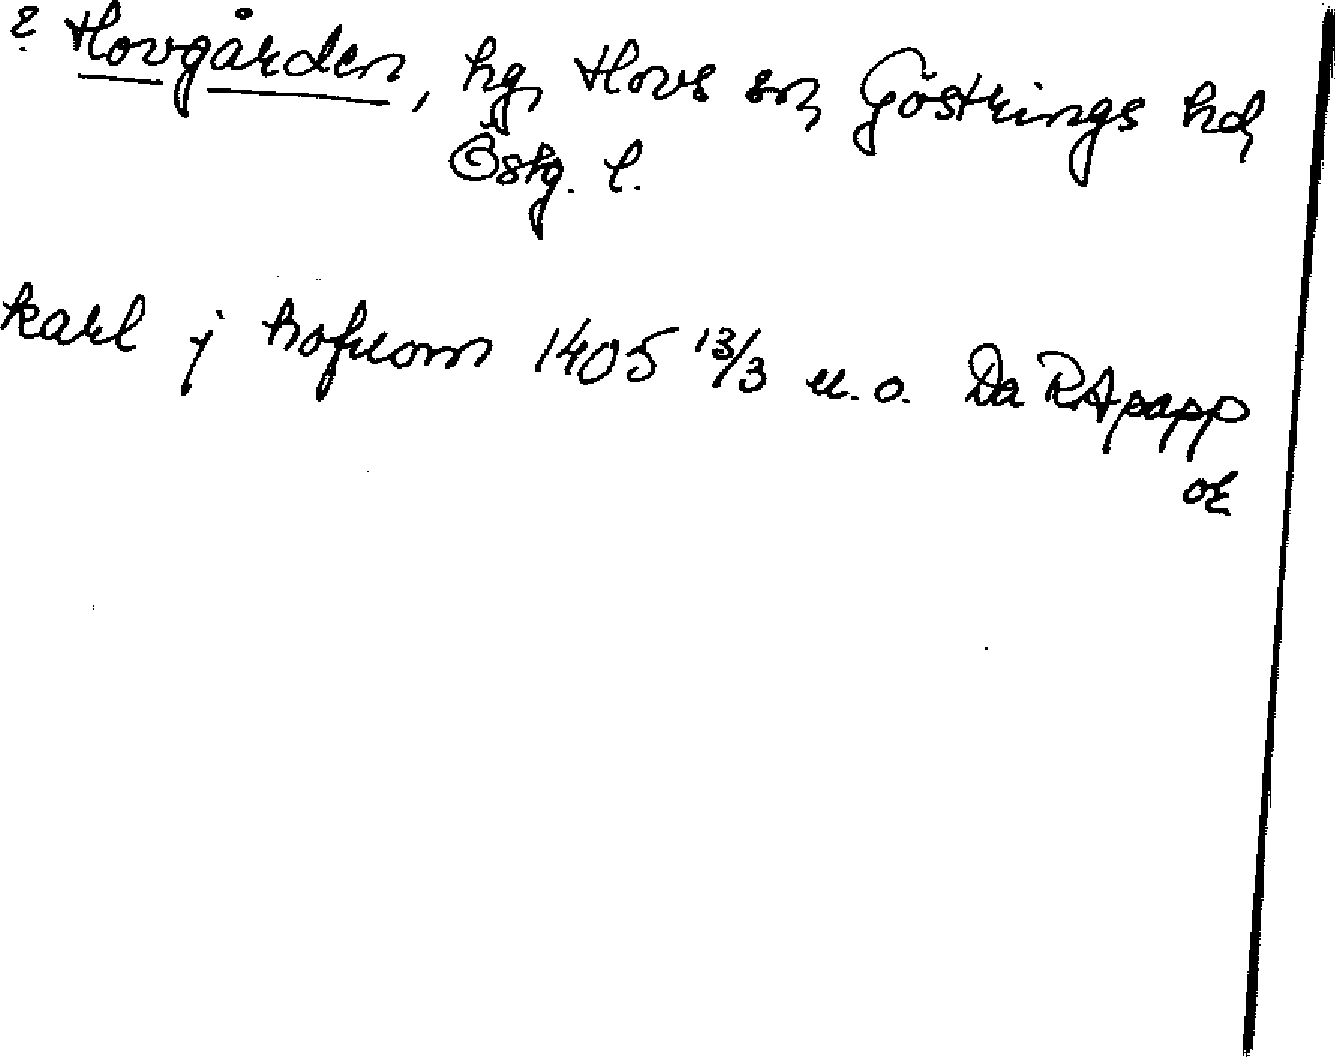 ? Hovgården, hg, Hovs sn, Göstrings hd,
Östg. l.
karl j hofuom 1405 13/3 u. o. Da RApapp
or